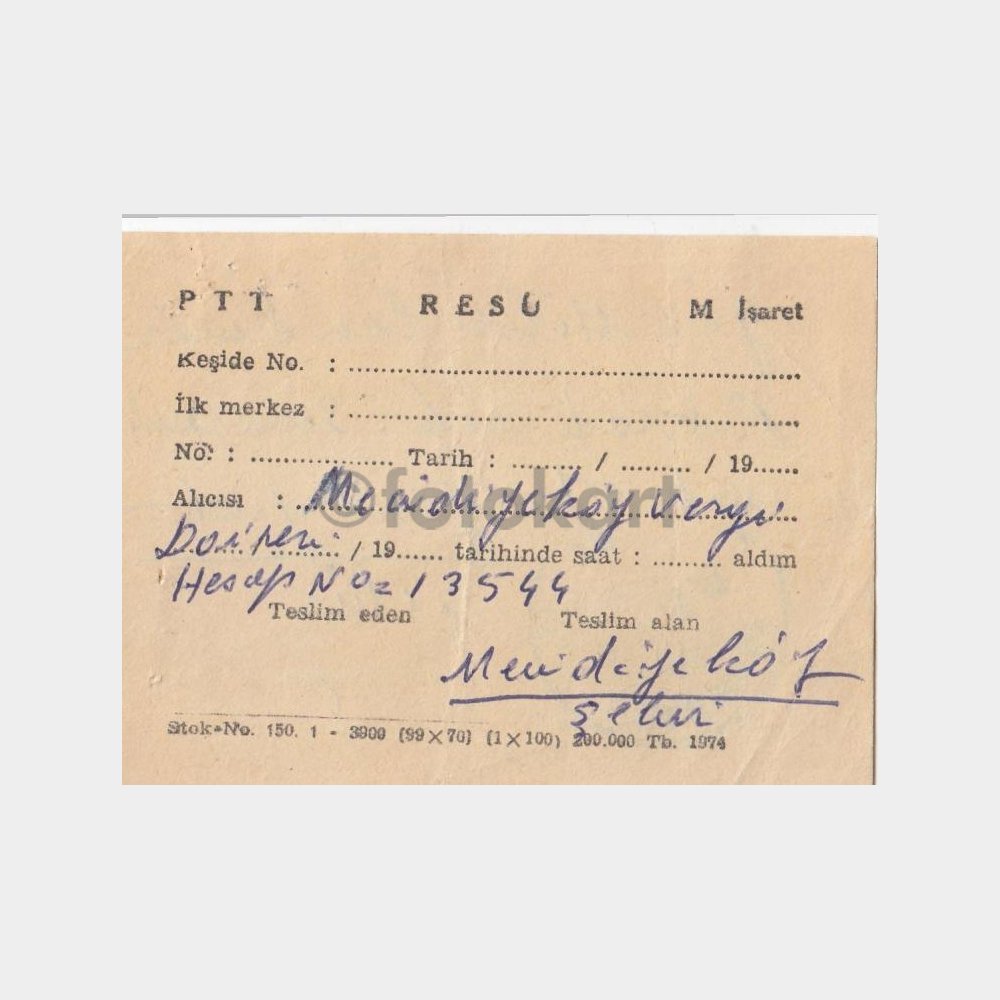 PTT RESÜ M İşaret
Keşide No. : ..............................
İlk merkez : ..............................
No: : .................. Tarih : ......... / ......... / 19......
Alıcısı : Mecidiyeköy Vergi
Dairesi / 19...... tarihinde saat : ......... aldım
Hesap No= 13544
Teslim eden Teslim alan
Mecidiyeköy
Şehir
Stok No. 150. 1 - 3900 (99×70) (1×100) 200.000 Tb. 1974
©fotokart